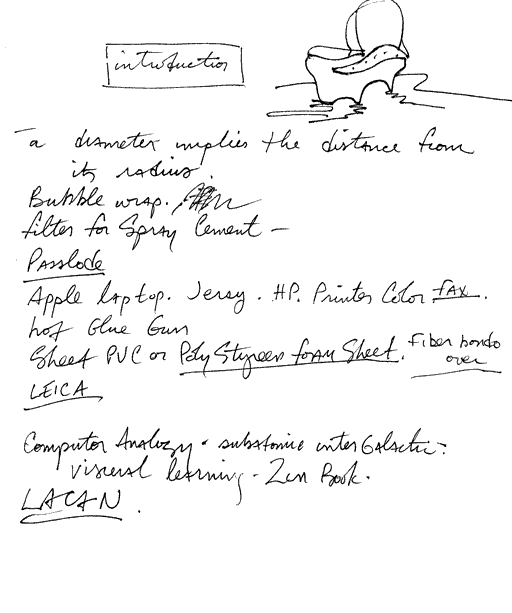 introduction
a diameter implies the distance from
its radius.
Bubble wrap.
filter for Spray Cement —
Passlode
Apple laptop. Jersy. HP. Printer Color FAX.
hot Glue Gun
Sheet PVC or Poly Styreen foam Sheet. Fiber bondo
over
LEICA
Computer Analogy • subatomic interGalactic -
visual learning - Zen Book.
LACAN.